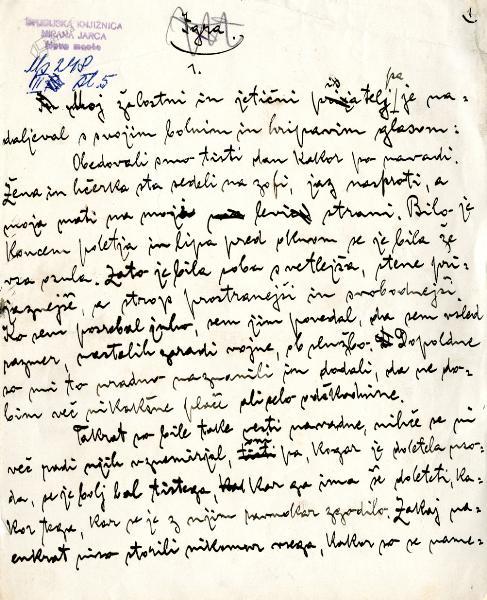 Igra.
1
ŠTUDIJSKA KNJIŽNICA
MIRANA JARCA
Novo mesto
Ms 248
1.
Moj žalostni in jetični prijatelj pa je na-
daljeval s svojim bolnim in hripavim glasom:
Obedovali smo tisti dan kakor po navadi.
Žena in hčerka sta sedeli na zofi, jaz nasproti, a
moja mati na moji levi strani. Bilo je
koncem poletja in lipa pred oknom se je bila že
vsa osula. Zato je bila soba svetlejša, stene pri-
jaznejše, a strop prostranejši in svobodnejši.
Ko sem posrebal juho, sem jim povedal, da sem vsled
razmer, nastalih zaradi vojne, ob službo. Dopoldne
so mi to uradno naznanili in dodali, da ne do-
bim več nikakšne plače ali pelo odškodnine.
Takrat so bile take vesti navadne, nihče se ni
več radi njih vznemirjal, oni pa, kogar je doletela uso-
da, se je bolj bal tistega, kar ga ima še doleteti, ka-
kor tega, kar se je z njim pravkar zgodilo. Zakaj na-
enkrat niso storili nikomur vsega, kakor so se name-